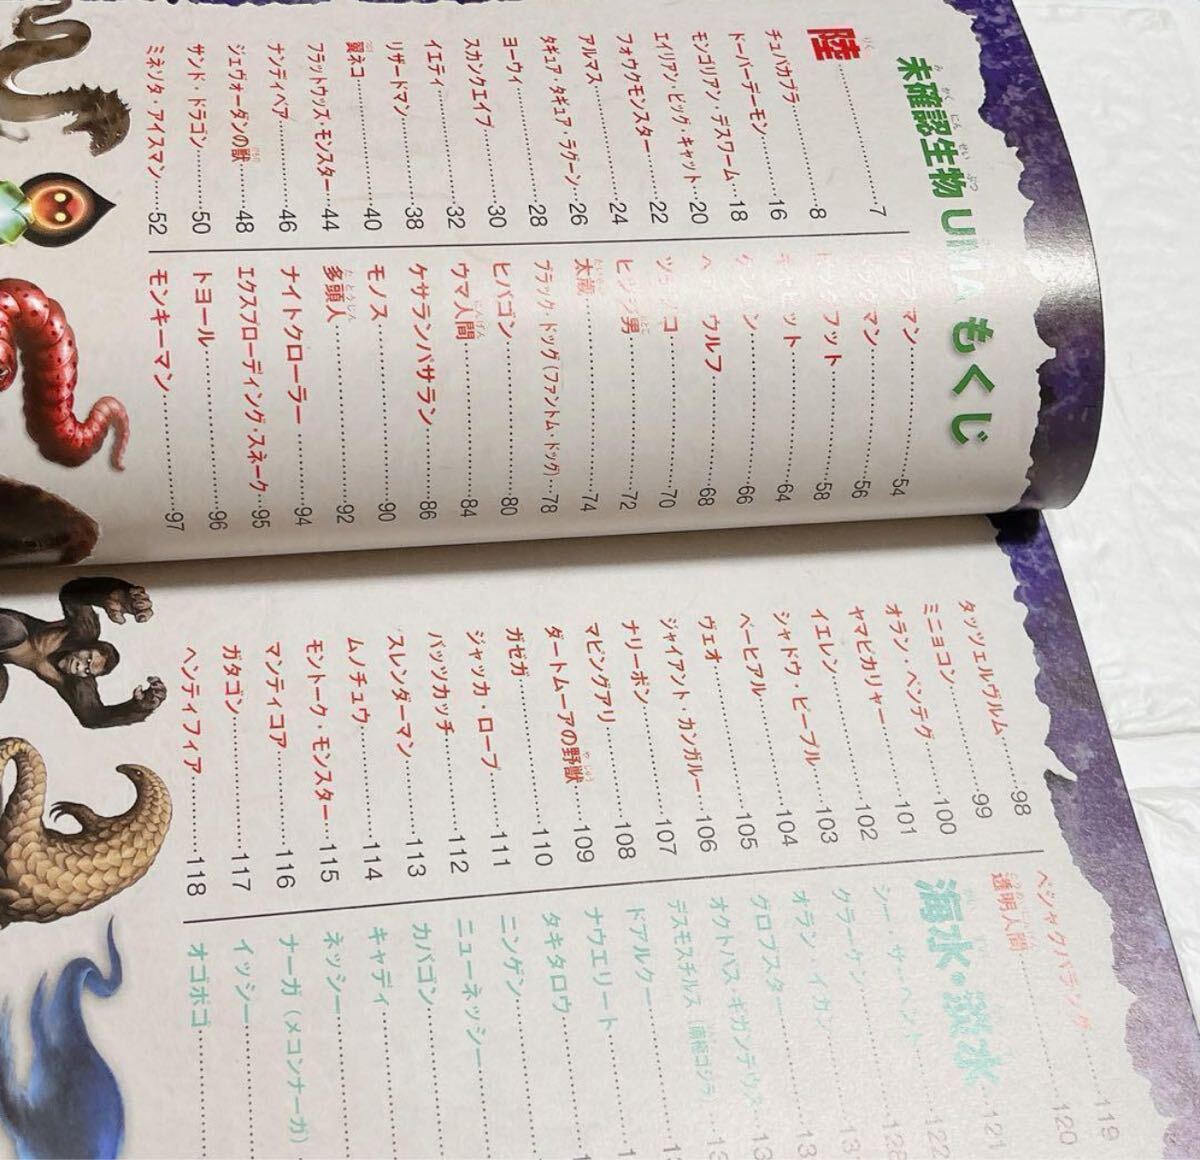 未確認生物 UMA もくじ
陸…………7
チュパカブラ…………8
ドーバーデーモン…………16
モンゴリアン・デスワーム…18
エイリアン・ビッグ・キャット…20
フォウクモンスター…………22
アルマス…………24
タギュア・タギュア・ラグーン…26
ヨーウィ…………28
スカンクエイプ…………30
イエティ…………32
リザードマン…………38
翼ネコ…………40
フラットウッズ・モンスター…44
ナンディベア…………46
ジェヴォーダンの獣…48
サンド・ドラゴン…………50
ミネソタ・アイスマン…………52
マン…………54
マン…………56
フット…………58
ット…………64
ン…………66
ウルフ…………68
ツチノコ…………70
ヒツジ男…………72
太歳…………74
ブラック・ドッグ(ファントム・ドッグ)…78
ヒバゴン…………80
ウマ人間…………84
ケサランパサラン…………86
モノス…………90
多頭人…………92
ナイトクローラー…………94
エクスプローディング・スネーク…95
トヨール…………96
モンキーマン…………97
タッツェルヴルム…………98
ミニョコン…………99
オラン・ペンテク…………100
ヤマピカリャー…………101
イエレン…………102
シャドウ・ピープル…………103
ベーヒアル…………104
ヴェオ…………105
ジャイアント・カンガルー…106
ナリーポン…………107
マピングアリ…………108
ダートムーアの野獣…109
ガゼガ…………110
ジャッカ・ロープ…………111
バッツカッチ…………112
スレンダーマン…………113
ムノチュウ…………114
モントーク・モンスター…115
マンティコア…………116
ガタゴン…………117
ヘンティフィア…………118
ベシャクパラング…………119
透明人間…………120
海水・淡水…………121
シー・サーペント…………122
クラーケン…………128
オラン・イカン…………13
クロフスター…………13
オクトパス・ギガンテウス…13
デスモスチルス
ドアルクー…………1
ナウエリート…………1
タキタロウ…………
ニンゲン…………
ニューネッシー…………
カバゴン…………
キャディ…………
ネッシー…………
ナーガ(メコンナーガ)
イッシー…………
オゴポゴ…………